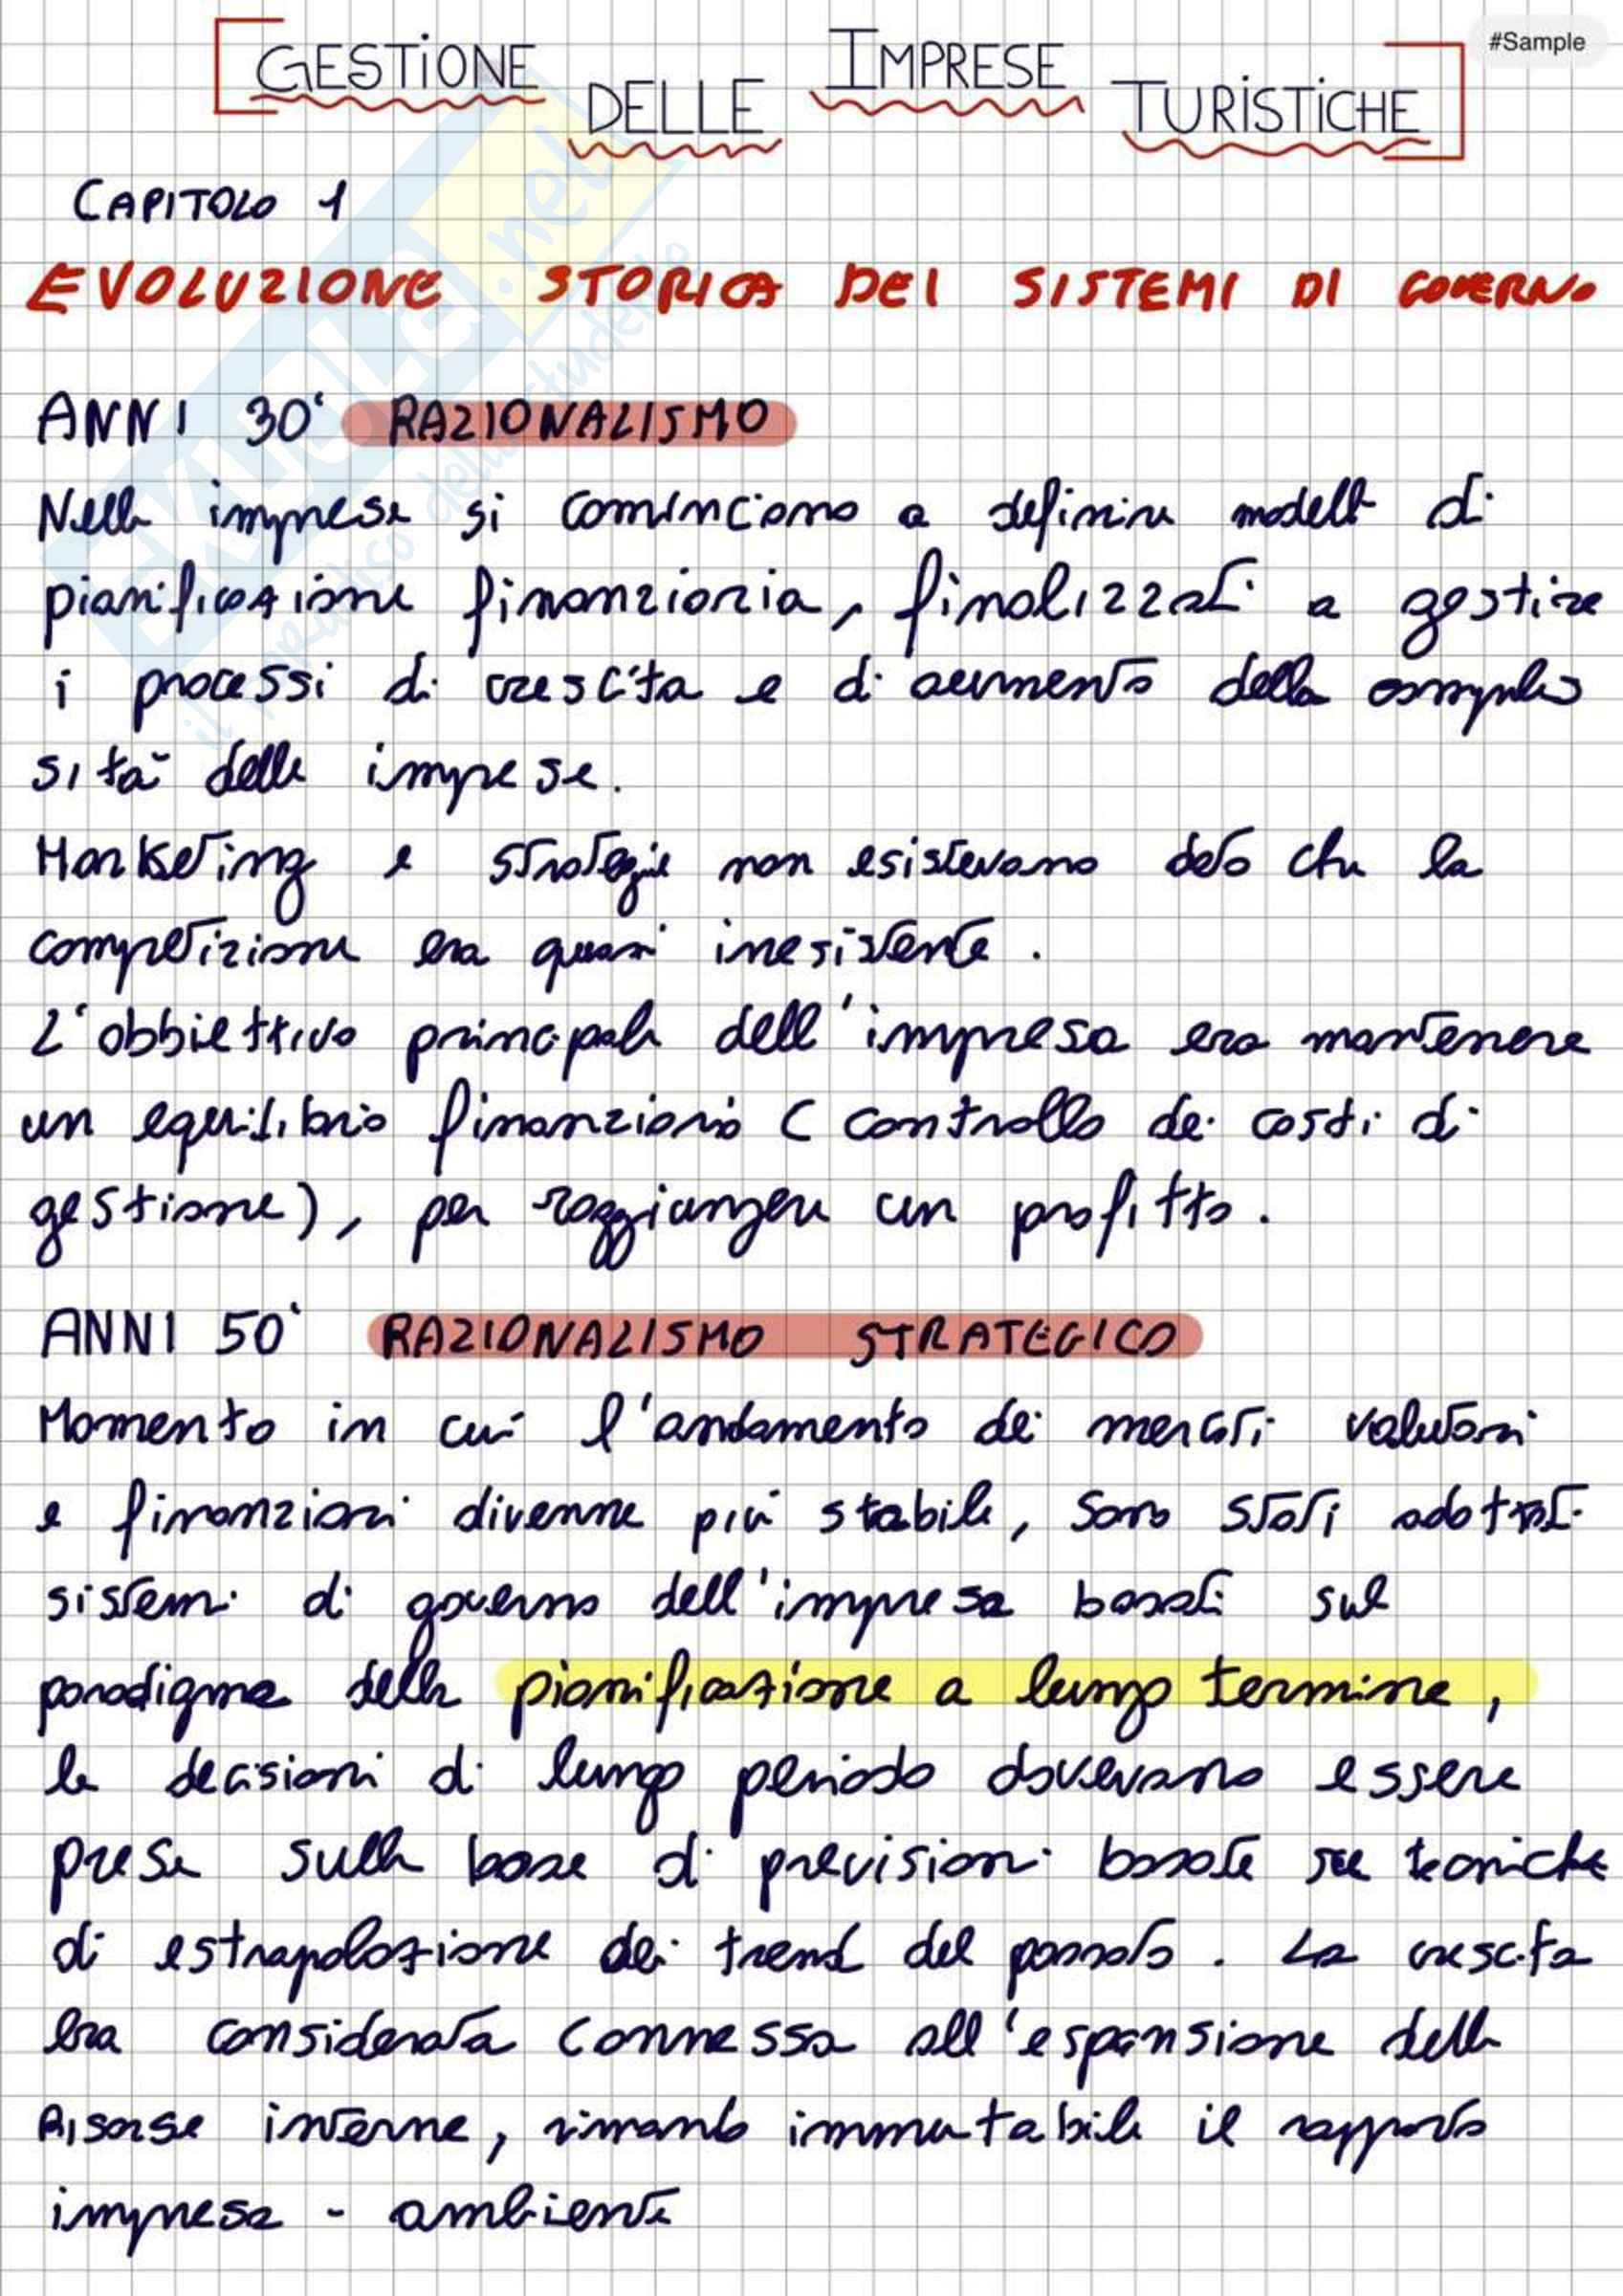 #Sample
GESTIONE DELLE IMPRESE TURISTICHE
CAPITOLO 1
EVOLUZIONE STORICA DEI SISTEMI DI GOVERNO
ANNI 30' RAZIONALISMO
Nelle imprese si cominciano a definire modelli di
pianificazione finanziaria, finalizzati a gestire
i processi di crescita e di aumento della comples
sità delle imprese.
Marketing e strategie non esistevano dato che la
competizione era quasi inesistente.
L'obbiettivo principale dell'impresa era mantenere
un equilibrio finanziario (controllo dei costi di
gestione), per raggiungere un profitto.
ANNI 50' RAZIONALISMO STRATEGICO
Momento in cui l'andamento dei mercati valutari
e finanziari divenne più stabile, sono stati adottati
sistemi di governo dell'impresa basati sul
paradigma della pianificazione a lungo termine,
le decisioni di lungo periodo dovevano essere
prese sulla base di previsioni basate su tecniche
di estrapolazione dei trend del passato. La crescita
era considerata connessa all'espansione delle
Risorse interne, rimando immutabile il rapporto
impresa - ambiente
SKUOLA.net
il paradiso dello studente